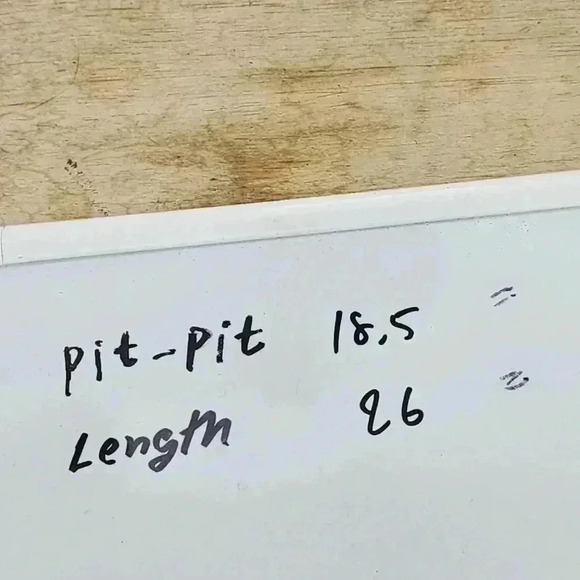 pit-pit 18.5 "
Length 26 "